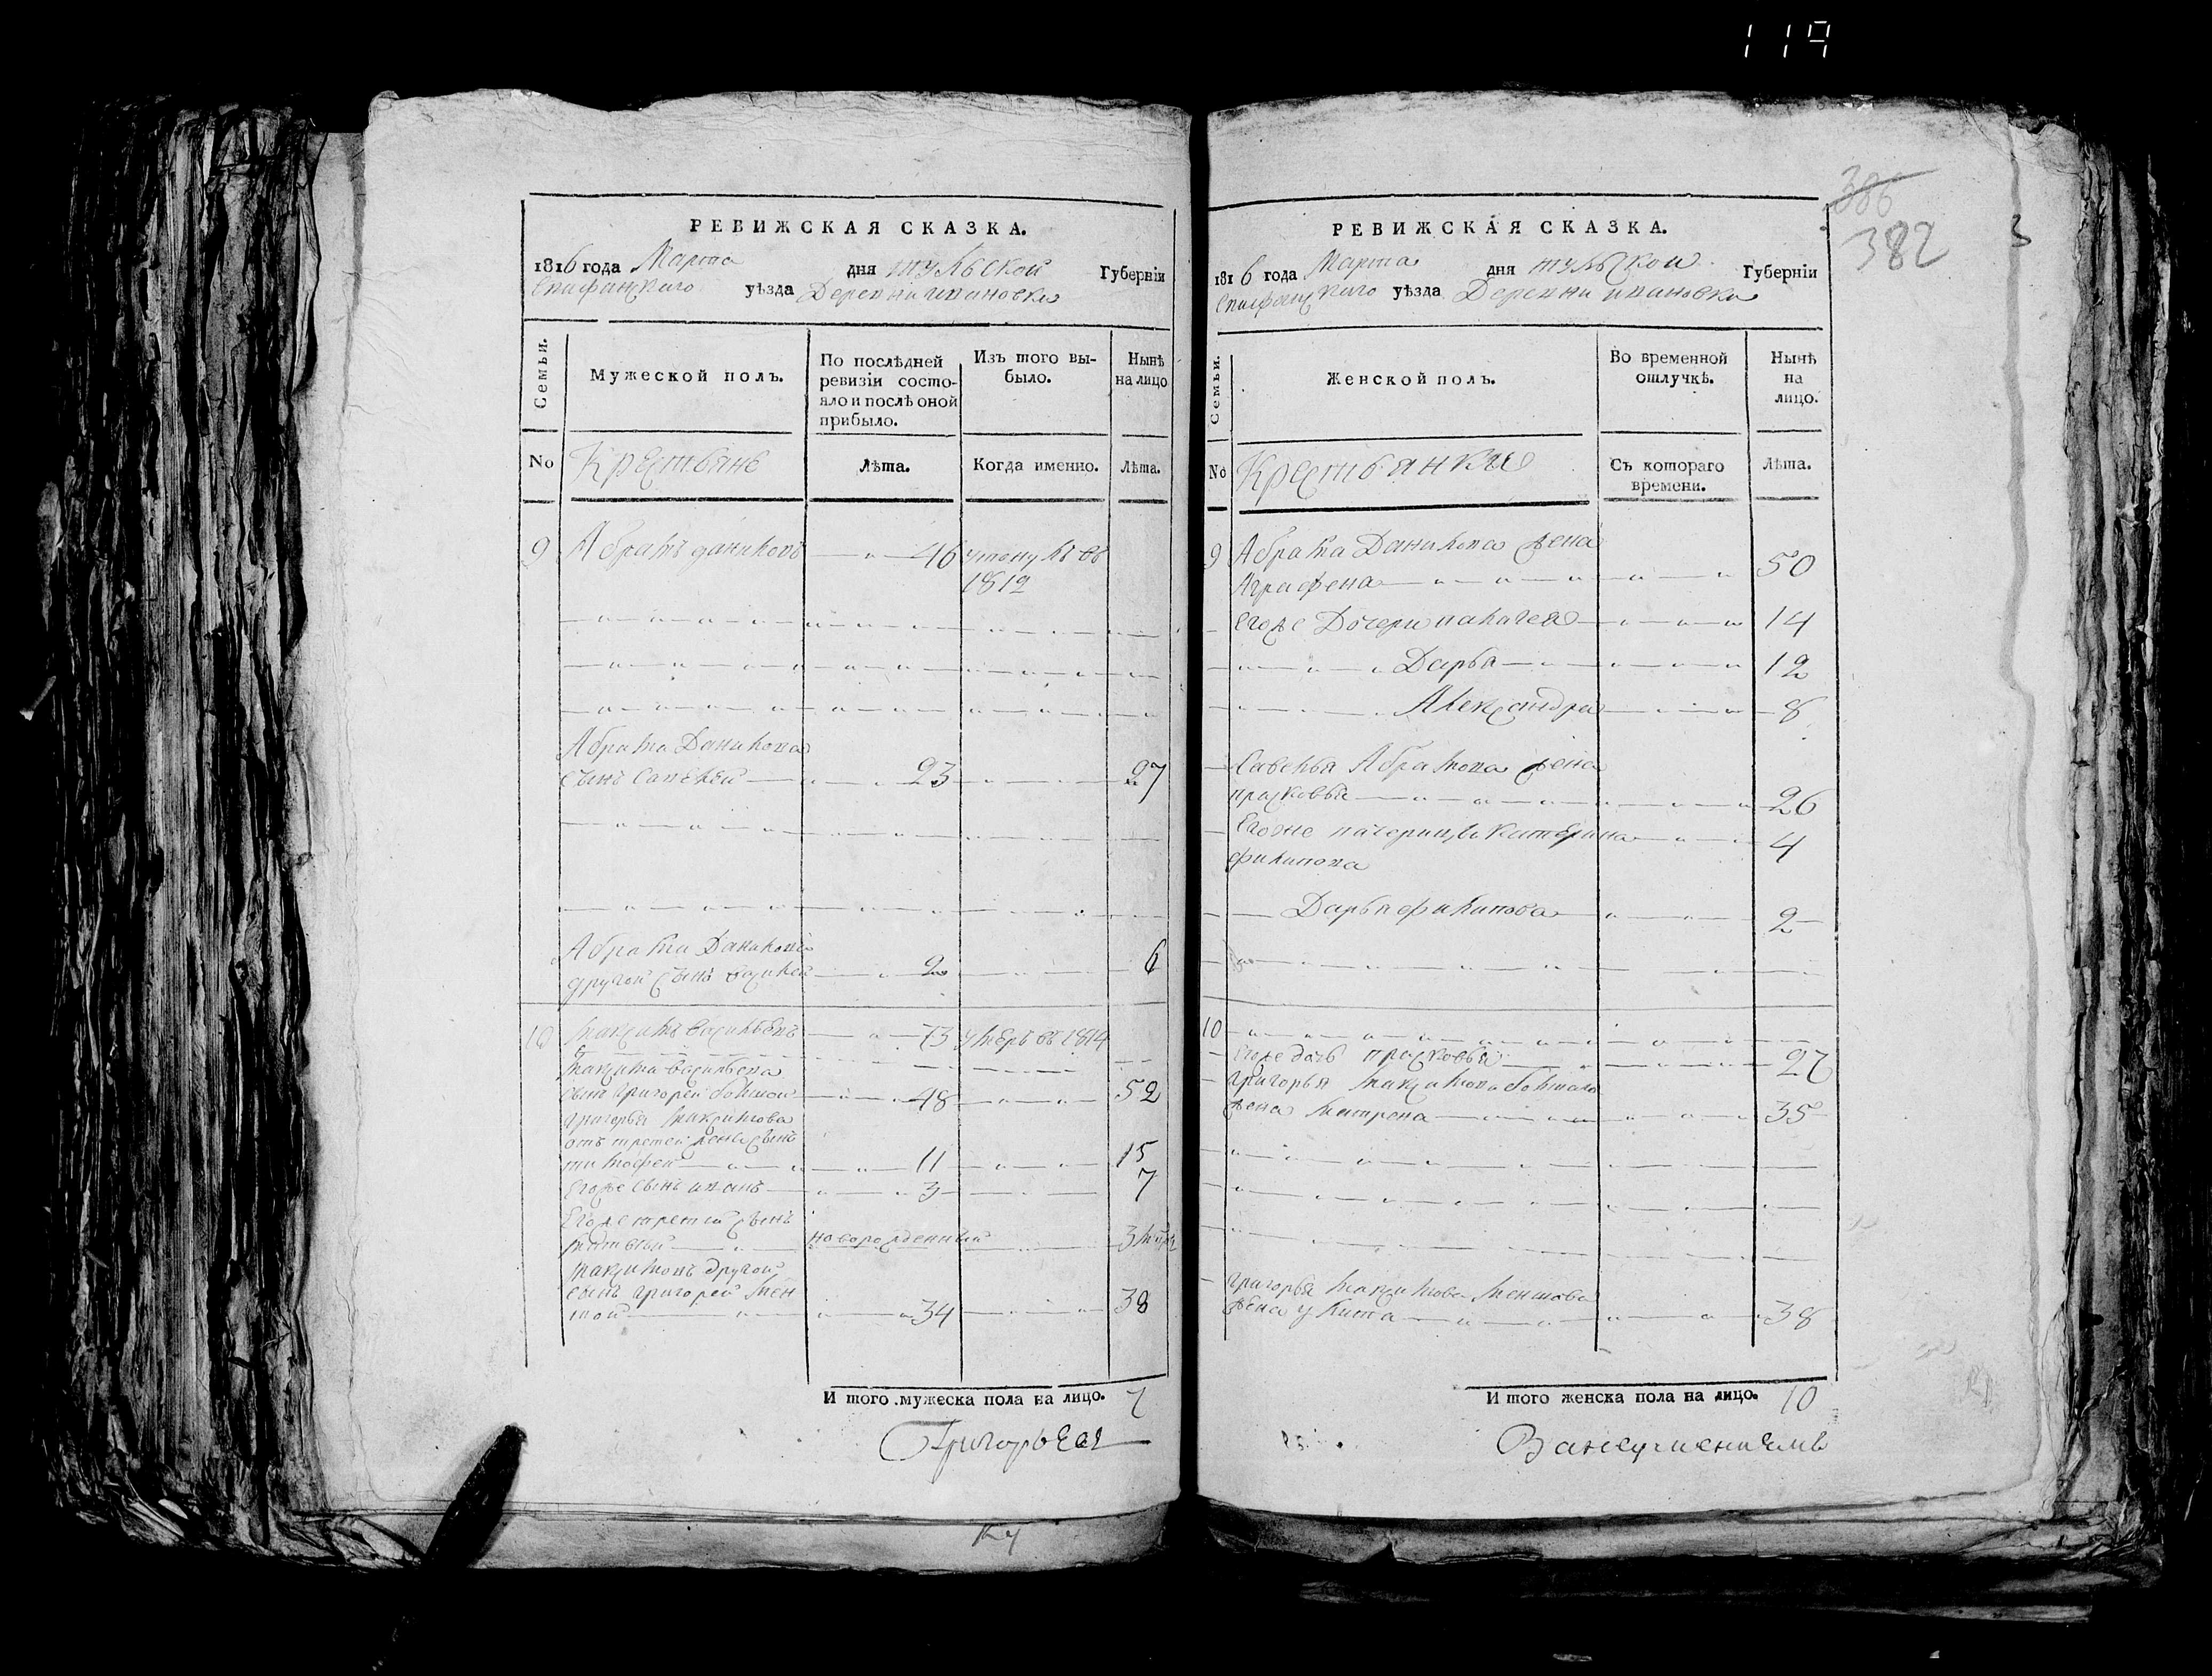 119
386
382
3
РЕВИЖСКАЯ СКАЗКА.
1816 года Марта дня тульской Губерніи
Епифанскаго уѣзда Деревни ивановки
Семьи.
Мужеской полъ.
По послѣдней ревизіи состояло и послѣ оной прибыло.
Изъ того выбыло.
Нынѣ на лицо
No Крестьяне Лѣта. Когда именно. Лѣта.
9 Абрамъ даниловъ 46 утонулъ въ
1812
Абрама Данилова
сынъ савелей 23 27
Абрама Данилова
другой сынъ 2 6
10 максимъ васильевъ 73 умеръ въ 1814
максима васильева
сынъ григорей болшой 48 52
григорья максимова
отъ третей жены сынъ
тимофей 11 15
Егоже сынъ иванъ 3 7
Егоже третей сынъ
матвей новорожденный 3
максимовъ другой
сынъ григорей мен
шой 34 38
И того мужеска пола на лицо. 7
Григорьевъ
РЕВИЖСКАЯ СКАЗКА.
1816 года Марта дня тульской Губерніи
Епифанскаго уѣзда Деревни ивановки
Семьи.
Женской полъ.
Во временной отлучкѣ.
Нынѣ на лицо.
No Крестьянки Съ котораго времени. Лѣта.
9 Абрама Данилова жена
Аграфена 50
Егоже Дочери палагея 14
Дарья 12
Александра 8
Савелья Абрамова жена
прасковья 26
Егоже падчерица катерина 4
филипова
Дарья филипова 2
10
Егоже дочь прасковья 27
григорья максимова болшаго
жена матрена 35
григорья максимова меншова
жена улита 38
И того женска пола на лицо. 10